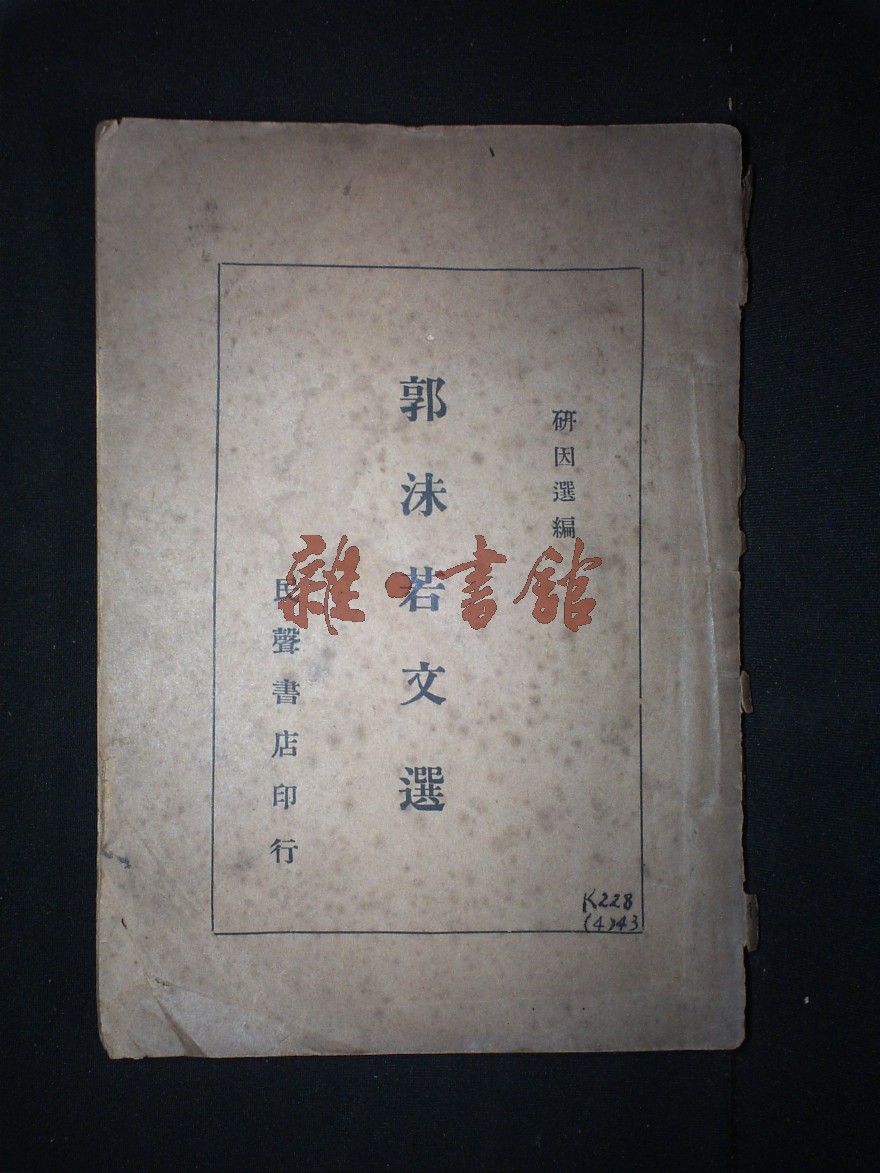 研因選編
郭沫若文選
民聲書店印行
雜·書館
K228
(4)43